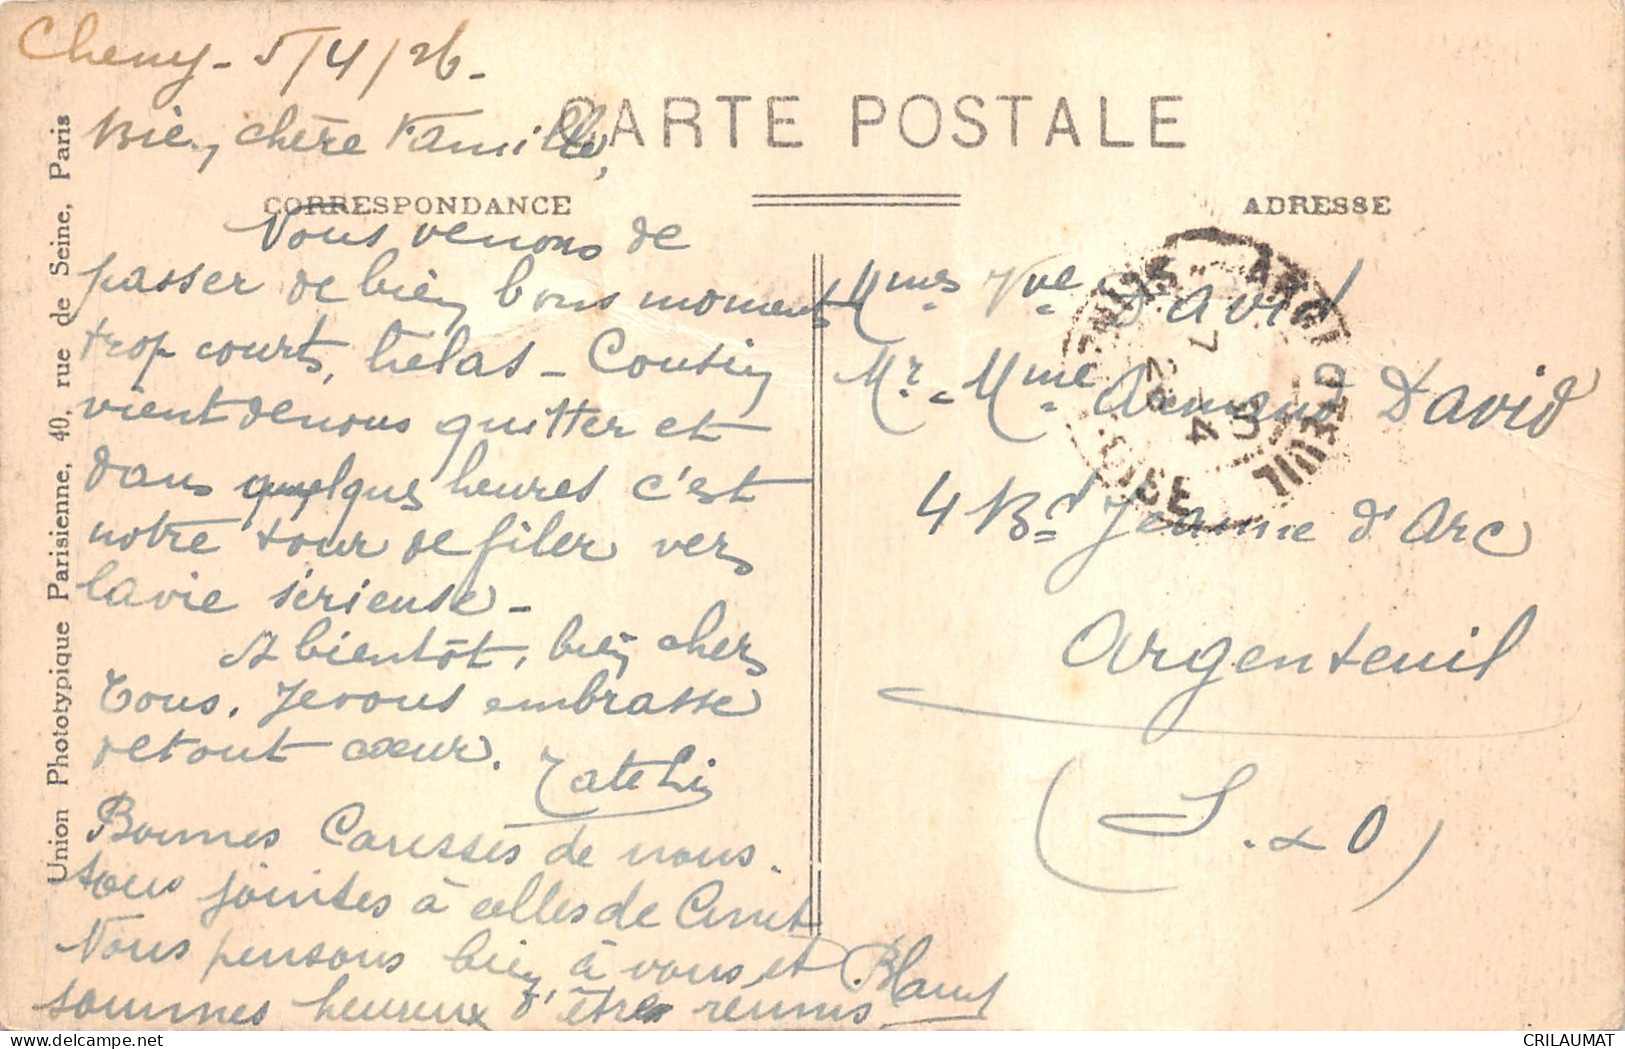 Cheny - 5/4/26 -
CARTE POSTALE
Bien chère Famille,
CORRESPONDANCE
Nous venons de
passer de bien bons moments
trop courts, hélas - Cousin
vient de nous quitter et
dans quelques heures c'est
notre tour de filer vers
la vie sérieuse -
A bientôt, bien chers
Tous. Je vous embrasse
de tout cœur.
Bonnes Caresses de nous
tous jointes à celles de
Nous pensons bien à vous et
sommes heureux d'être réunis
ADRESSE
Mmes Vve David
Mr. Mme Armand David
4 Bd Jeanne d'Arc
Argenteuil
(S. & O)
ARGENTEUIL
SEINE-ET-OISE
7 - 4
26
Union Phototypique Parisienne, 40, rue de Seine, Paris
CRILAUMAT